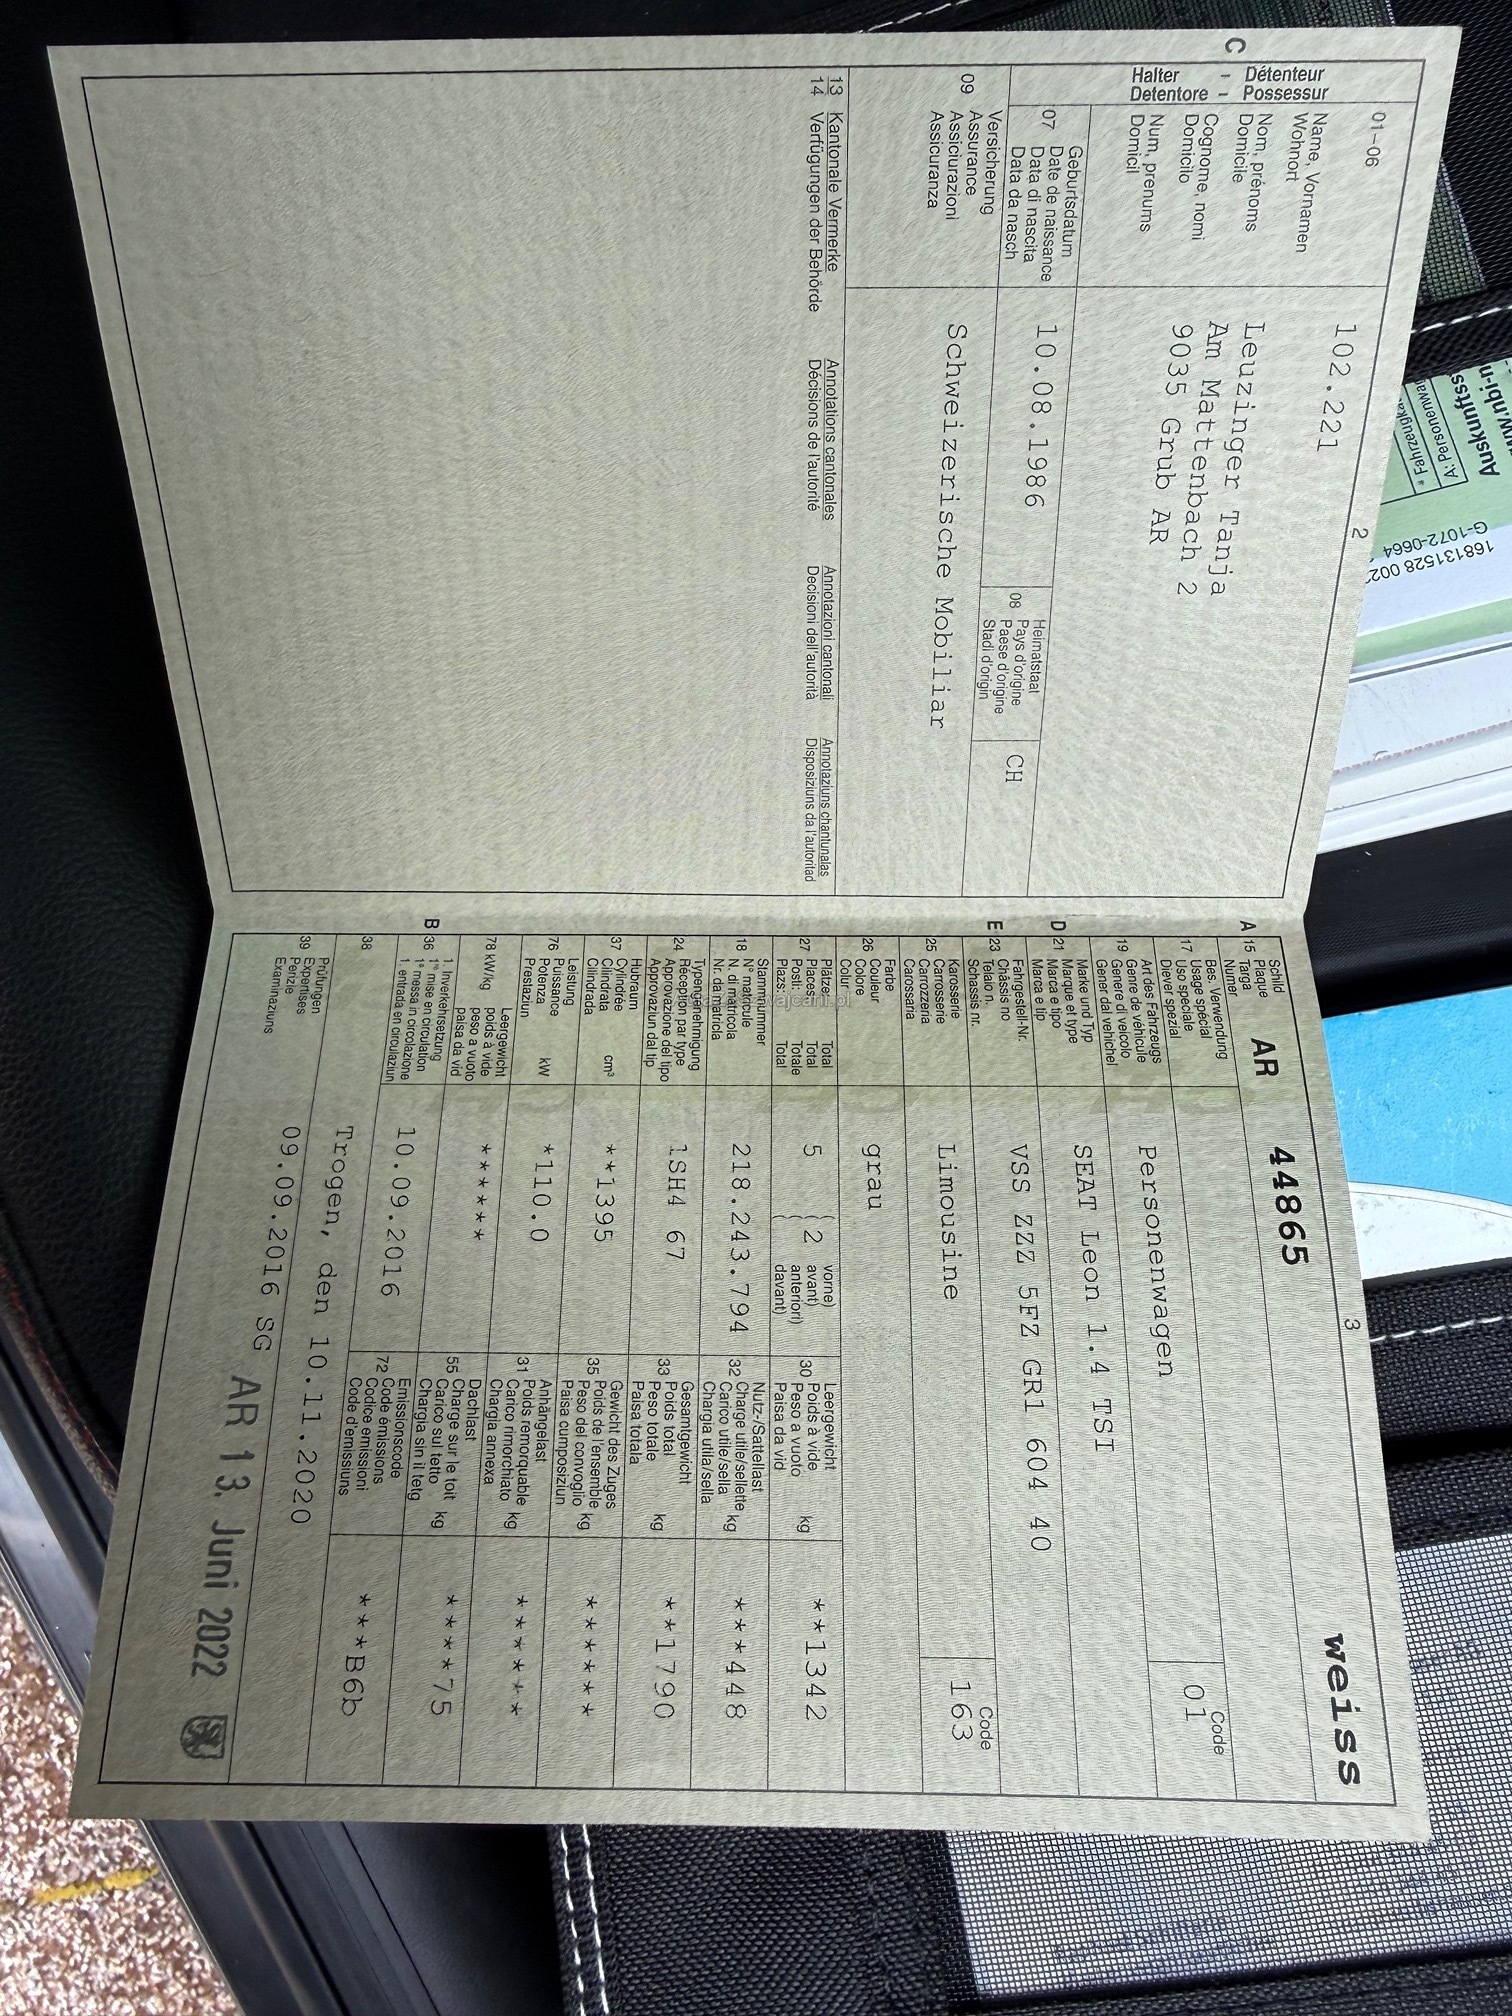 2
01-06
102.221
C
Halter - Détenteur
Detentore - Possessur
Name, Vornamen
Wohnort
Nom, prénoms
Domicile
Cognome, nomi
Domicilo
Num, prenums
Domicil
Leuzinger Tanja
Am Mattenbach 2
9035 Grub AR
Geburtsdatum
07 Date de naissance
Data di nascita
Data da nasch
10.08.1986
Heimatstaat
08 Pays d'origine
Paese d'origine
Stadi d'origin
CH
Versicherung
09 Assurance
Assiciurazioni
Assicuranza
Schweizerische Mobiliar
13 Kantonale Vermerke Annotations cantonales Annotazioni cantonali Annotaziuns chantunalas
14 Verfügungen der Behörde Décisions de l'autorité Decisioni dell'autorità Disposiziuns da l'autoritad
3
A
Schild
15 Plaque
Targa
Numer
AR 44865 weiss
Bes. Verwendung
17 Usage spécial
Uso speciale
Diever spezial
Code
01
Art des Fahrzeugs
19 Genre de véhicule
Genere di veicolo
Gener dal vehichel
Personenwagen
D
Marke und Typ
21 Marque et type
Marca e tipo
Marca e tip
SEAT Leon 1.4 TSI
E
Fahrgestell-Nr.
23 Châssis no
Telaio n.
Schassis nr.
VSS ZZZ 5FZ GR1 604 40
Karosserie
25 Carrosserie
Carrozzeria
Carossaria
Limousine
Code
163
Farbe
26 Couleur
Colore
Colur
grau
Plätze: Total
27 Places: Total
Posti: Totale
Plazs: Total
5 ( 2 vorne)
( avant)
anteriori)
davant)
Leergewicht
30 Poids à vide
Peso a vuoto kg
Paisa da vid
**1342
Stammnummer
18 N° matricule
N. di matricola
Nr. da matricla
218.243.794
Nutz-/Sattellast
32 Charge utile/sellette
Carico utile/sella kg
Chargia utila/sella
***448
Typengenehmigung
24 Réception par type
Approvazione del tipo
Approvaziun dal tip
1SH4 67
Gesamtgewicht
33 Poids total
Peso totale kg
Paisa totala
**1790
Hubraum
37 Cylindrée
Cilindrata cm³
Cilindrada
**1395
Gewicht des Zuges
35 Poids de l'ensemble
Peso del convoglio kg
Paisa cumposiziun
******
Leistung
76 Puissance
Potenza kW
Prestaziun
*110.0
Anhängelast
31 Poids remorquable
Carico rimorchiato kg
Chargia annexa
******
Leergewicht
78 kW/kg poids à vide
peso a vuoto
paisa da vid
*****
Dachlast
55 Charge sur le toit
Carico sul tetto kg
Chargia sin il tetg
****75
B
1. Inverkehrsetzung
36 1re mise en circulation
1a messa in circolazione
1. entrada en circulaziun
10.09.2016
Emissionscode
72 Code émissions
Codice emissioni
Code d'emissiuns
***B6b
38
Trogen, den 10.11.2020
Prüfungen
39 Expertises
Perizie
Examinaziuns
09.09.2016 SG
AR 13. Juni 2022
Auskunftss
A: Personenwa
* Fahrzeugka
G-1072-0664